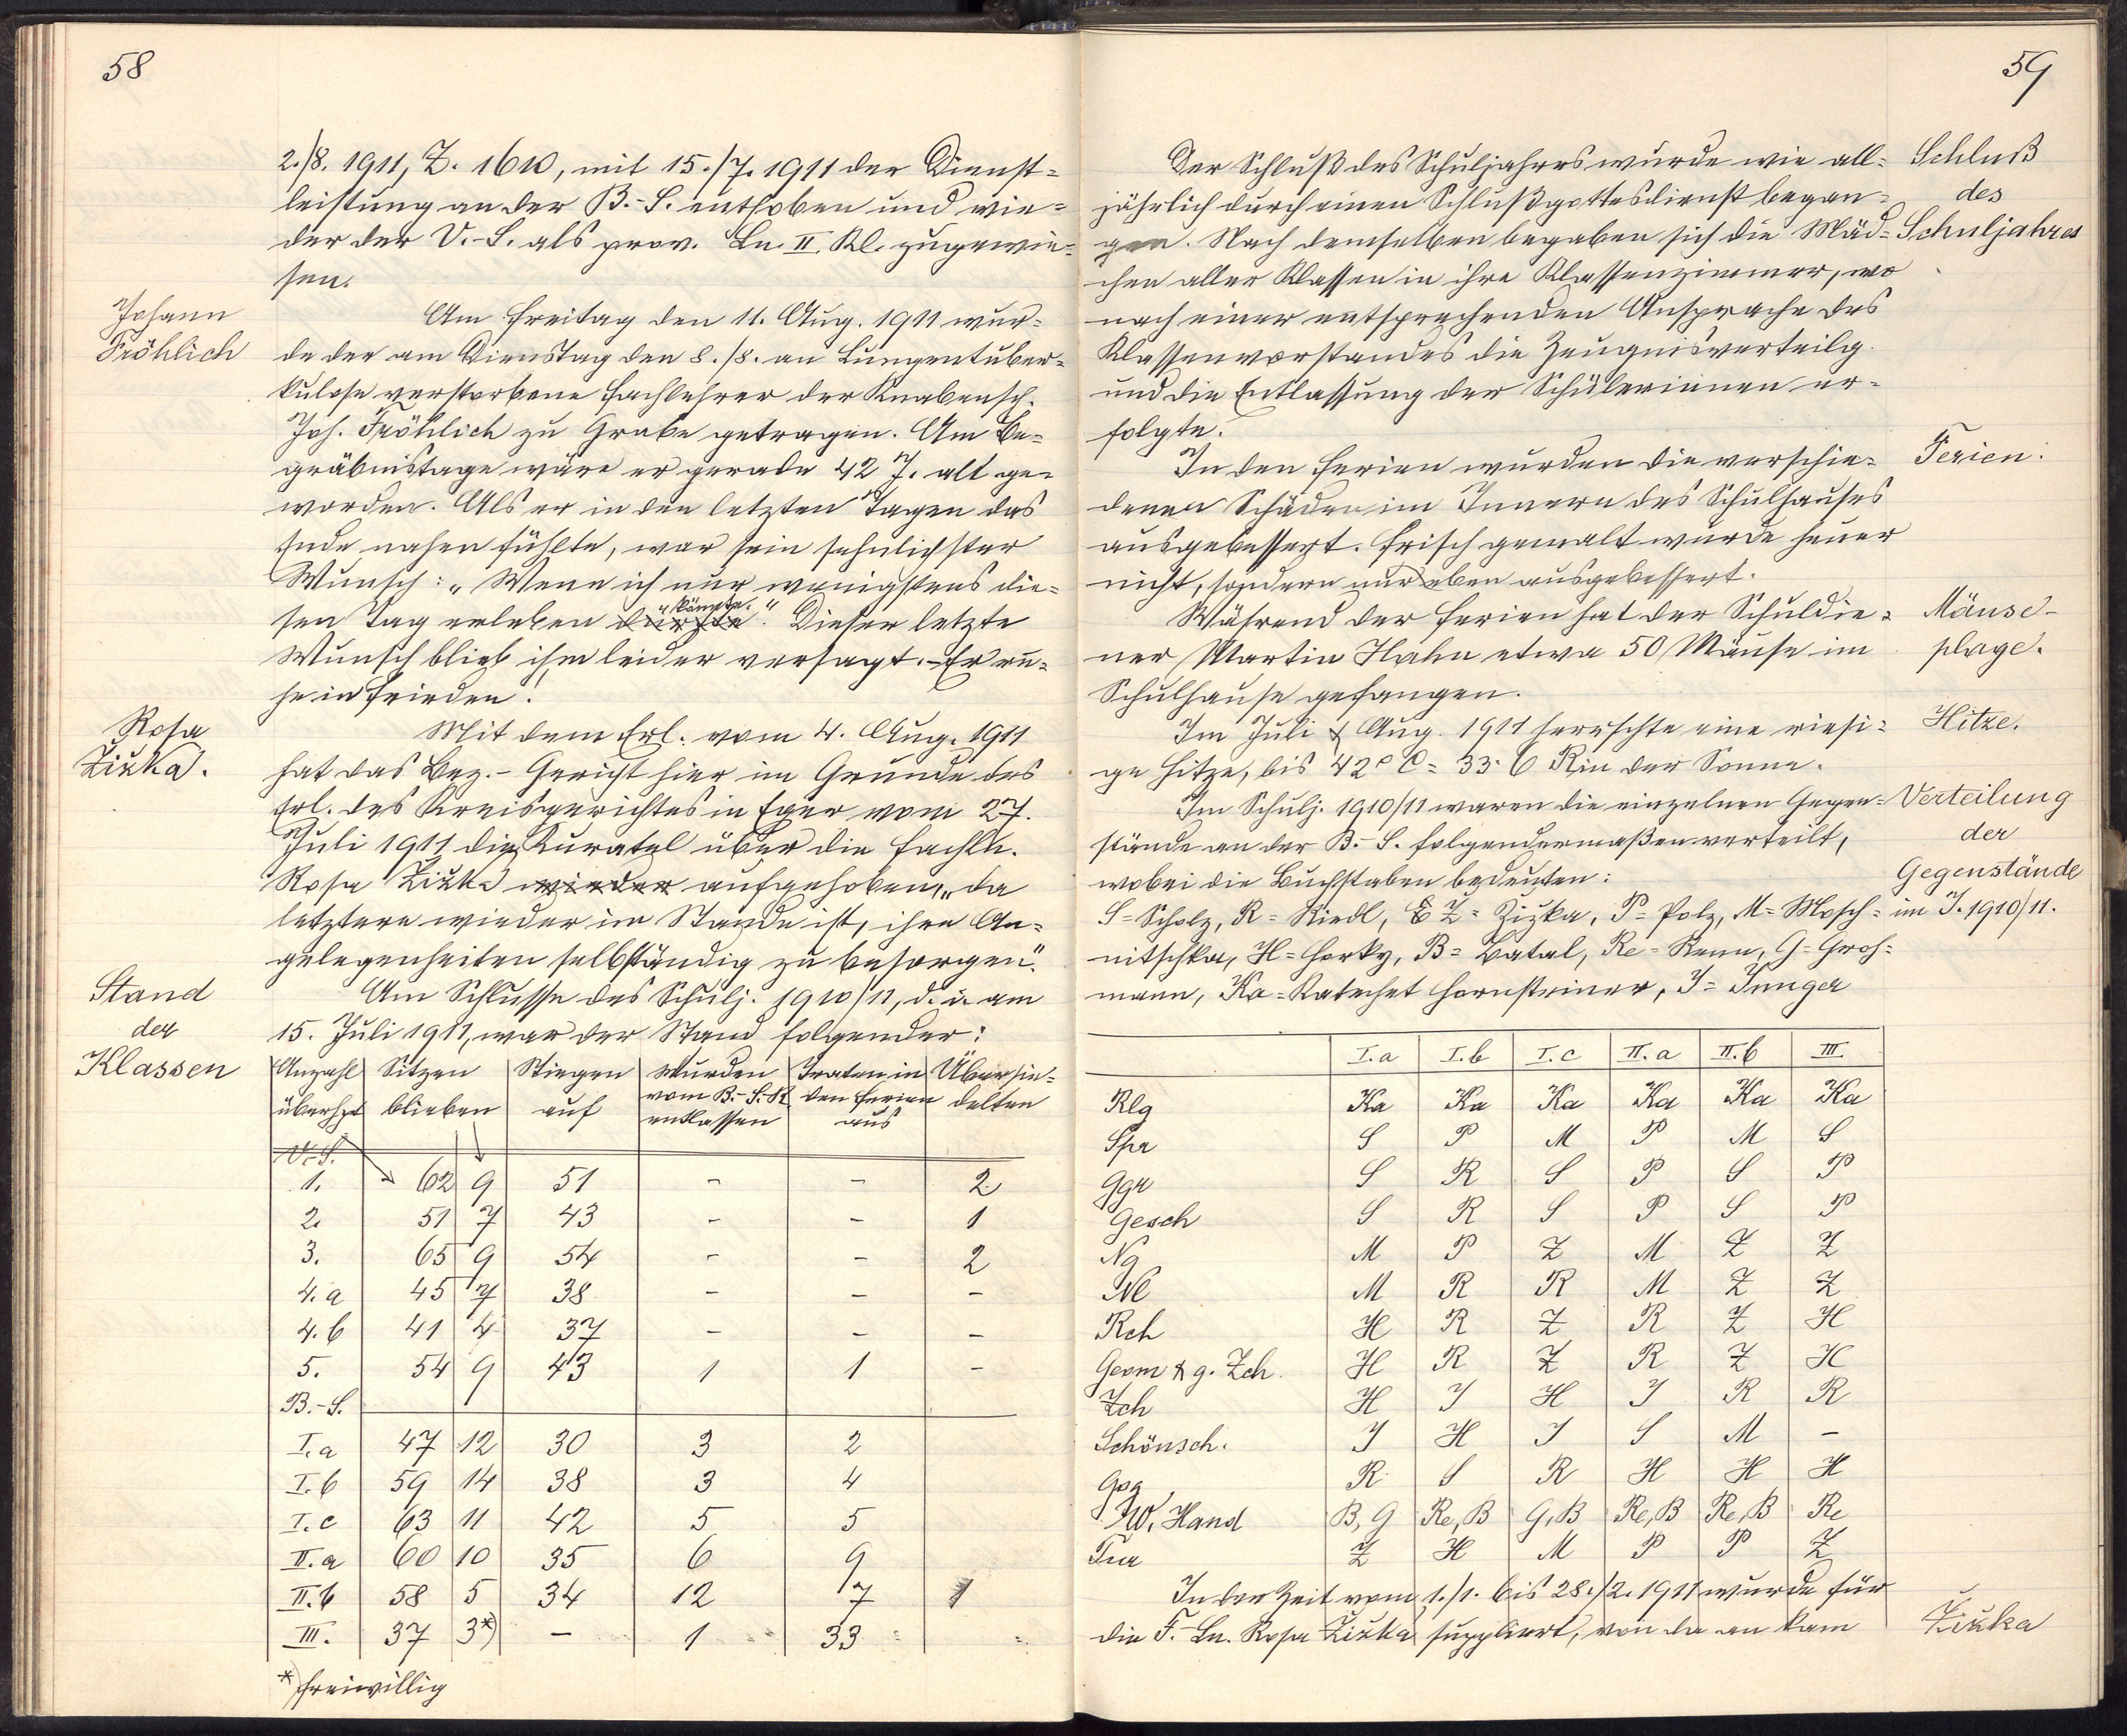 58
2./8. 1911, Z. 1610, mit 15./7. 1911 der Dienst=
leistung an der B.-S. enthoben und wie=
der der V.-S. als prov. Ln. II. Kl. zugewie=
sen.
Johann
Fröhlich
Am Freitag den 11. Aug. 1911 wur=
de der am Dienstag den 8./8. an Lungentuber=
kulose verstorbene Fachlehrer der Knabensch.
Joh. Fröhlich zu Grabe getragen. Am Be=
gräbnistage wäre er gerade 42 J. alt ge=
worden. Als er in den letzten Tagen das
Ende nahen fühlte, war sein sehnlichster
Wunsch: „Wenn ich nur wenigstens die=
sen Tag erleben dürfte könnte.“ Dieser letzte
Wunsch blieb ihm leider versagt. – Er ru=
he in Frieden!
Rosa
Zizka.
Mit dem Erl. vom 4. Aug. 1911
hat das Bez.-Gericht hier im Grunde des
Erl. des Kreisgerichtes in Eger vom 27.
Juli 1911 die Kuratel über die Fachln.
Rosa Zizka wieder aufgehoben, „da
letztere wieder im Stande ist, ihre An=
gelegenheiten selbständig zu besorgen“.
Stand
der
Klassen
Am Schlusse des Schulj. 1910/11, d. i. am
15. Juli 1911, war der Stand folgender:
Anzahl überhpt | Sitzen blieben | Stiegen auf | Wurden vom B.-S.-R. entlassen | Traten in den Ferien aus | Übersie= delten
V.-S.
1. 62 9 51 – – 2
2. 51 7 43 – – 1
3. 65 9 54 – – 2
4. a 45 7 38 – – –
4. b 41 4 37 – – –
5. 54 9 43 1 1 –
B.-S.
I. a 47 12 30 3 2
I. b 59 14 38 3 4
I. c 63 11 42 5 5
II. a 60 10 35 6 9
II. b 58 5 34 12 7 1
III. 37 3*) – 1 33
*) freiwillig
59
Schluß
des
Schuljahres
Der Schluß des Schuljahres wurde wie all=
jährlich durch einen Schlußgottesdienst began=
gen. Nach demselben begaben sich die Mäd=
chen aller Klassen in ihre Klassenzimmer, wo
nach einer entsprechenden Ansprache des
Klassenvorstandes die Zeugnisverteilg.
und die Entlassung der Schülerinnen er=
folgte.
Ferien.
In den Ferien wurden die verschie=
denen Schäden im Innern des Schulhauses
ausgebessert. Frisch gemalt wurde heuer
nicht, sondern nur eben ausgebessert.
Mäuse-
plage.
Während der Ferien hat der Schuldie=
ner Martin Hahn etwa 50 Mäuse im
Schulhause gefangen.
Hitze.
Im Juli & Aug. 1911 herrschte eine riesi=
ge Hitze, bis 42° C = 33·6 R in der Sonne.
Verteilung
der
Gegenstände
im J. 1910/11.
Im Schulj. 1910/11 waren die einzelnen Gegen=
stände an der B.-S. folgendermaßen verteilt,
wobei die Buchstaben bedeuten:
S = Scholz, R = Riedl, Z = Zizka, P = Polz, M = Mosch=
nitschka, H = Horky, B = Batal, Re = Renn, G = Groh=
mann, Ka = Katechet Hornsteiner, J = Junger
I. a I. b I. c II. a II. b III.
Rlg Ka Ka Ka Ka Ka Ka
Spr S P M P M S
Ggr S R S P S P
Gesch S R S P S P
Ng M P Z M Z Z
Nl M R R M Z Z
Rch H R Z R Z H
Geom & g. Zch. H R Z R Z H
Zch H J H J R R
Schönsch. J H J S M –
Gsg R S R H H H
W. Hand B, G Re, B G, B Re, B Re, B Re
Tur Z H M P P Z
Zizka
In der Zeit vom 1./1. bis 28./2. 1911 wurde für
die F.-Ln. Rosa Zizka suppliert, von da an kam